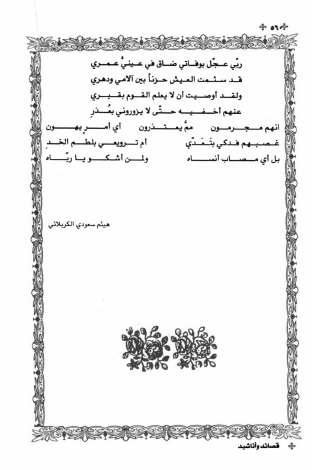 ٥٦
ربّي عجّل بوفاتي ضاق في عينيَّ عمري
قد سئمت العيش حزناً بين آلامي ودهري
ولقد أوصيت أن لا يعلم القوم بقبري
عنهم أخفيه حتّى لا يزوروني بعُذرِ
انهم مجرمون ممَّ يعتذرون أي أمرٍ يهون
غصبهم فدكي بتعَدّي أم ترويعي بلطم الخدِ
بل أي مصاب أنساه ولمن أشكو يا ربّاه
هيثم سعودي الكربلائي
قصائد وأناشيد